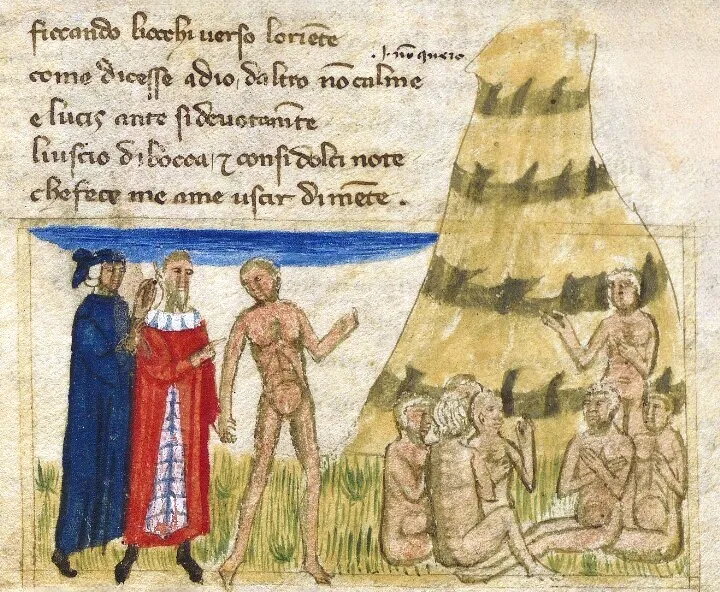 ficcando liocchi uerso loriēte
.i. nō quero
come dicesse adio, daltro nō calme
e lucis ante si deuotamēte
liuscio di bocca, ⁊ consi dolci note
chefece me ame uscir dimēte .